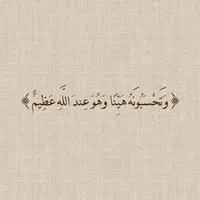 ﴿ وَتَحْسَبُونَهُ هَيِّنًا وَهُوَ عِندَ اللَّهِ عَظِيمٌ ﴾